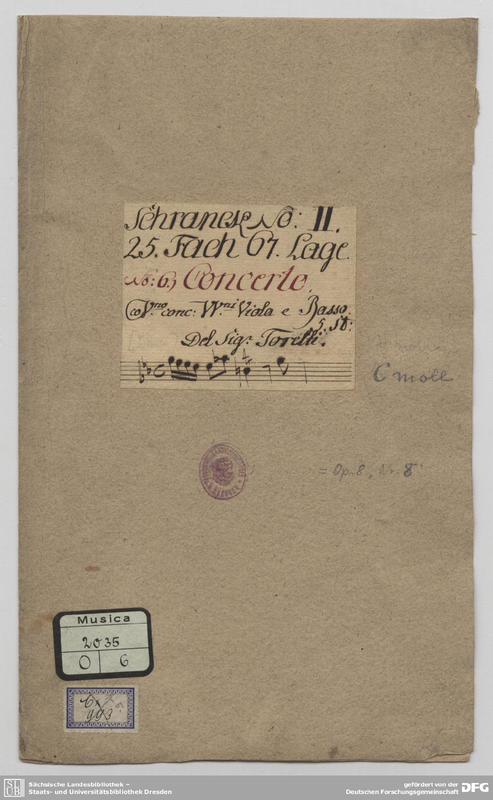 Schranck No: II.
25. Fach 67. Lage.
No: 6.) Concerto.
Co V.no conc: VV.ni Viola e Basso.
5. St:
Del Sig.r Torelli.
C moll
= Op. 8, Nr. 8
Musica
2035
O 6
Cx
993
Sächsische Landesbibliothek –
Staats- und Universitätsbibliothek Dresden
gefördert von der
Deutschen Forschungsgemeinschaft DFG